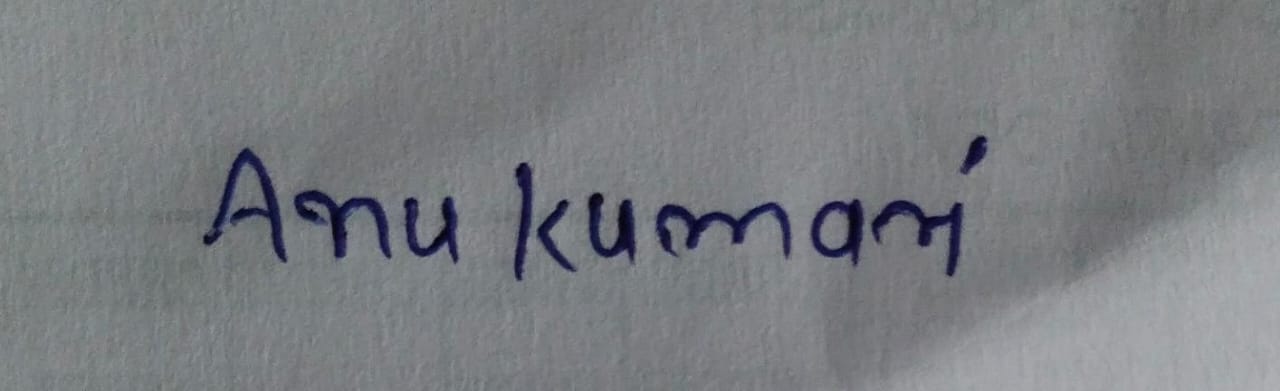 Anu kumari